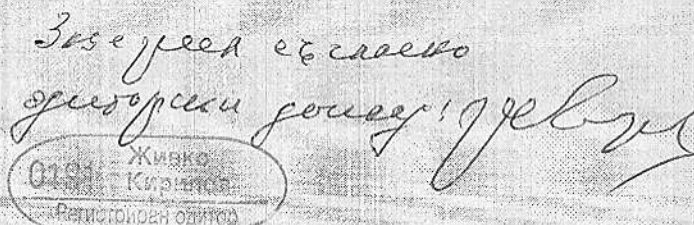 Заверил съгласно
одиторски доклад!
0181 Живко
Кирилов
Регистриран одитор